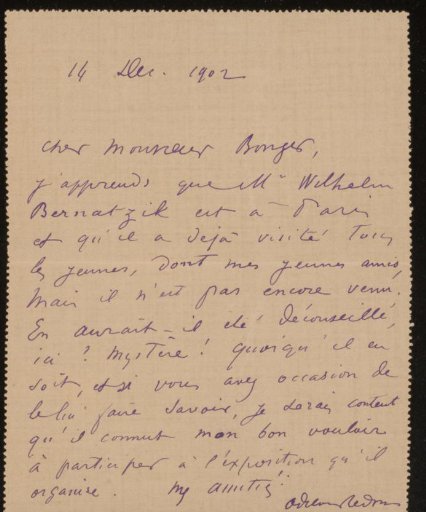 14 Dec. 1902
Cher Monsieur Bonger,
j'apprends que Mr Wilhelm
Bernatzik est à Paris
et qu'il a déjà visité tous
les jeunes, dont mes jeunes amis,
mais il n'est pas encore venu.
En aurait-il été déconseillé,
ici ? Mystère ! quoiqu'il en
soit, et si vous avez occasion de
le lui faire savoir, je serais content
qu'il connut mon bon vouloir
à participer à l'exposition qu'il
organise. My amitié
Odilon Redon